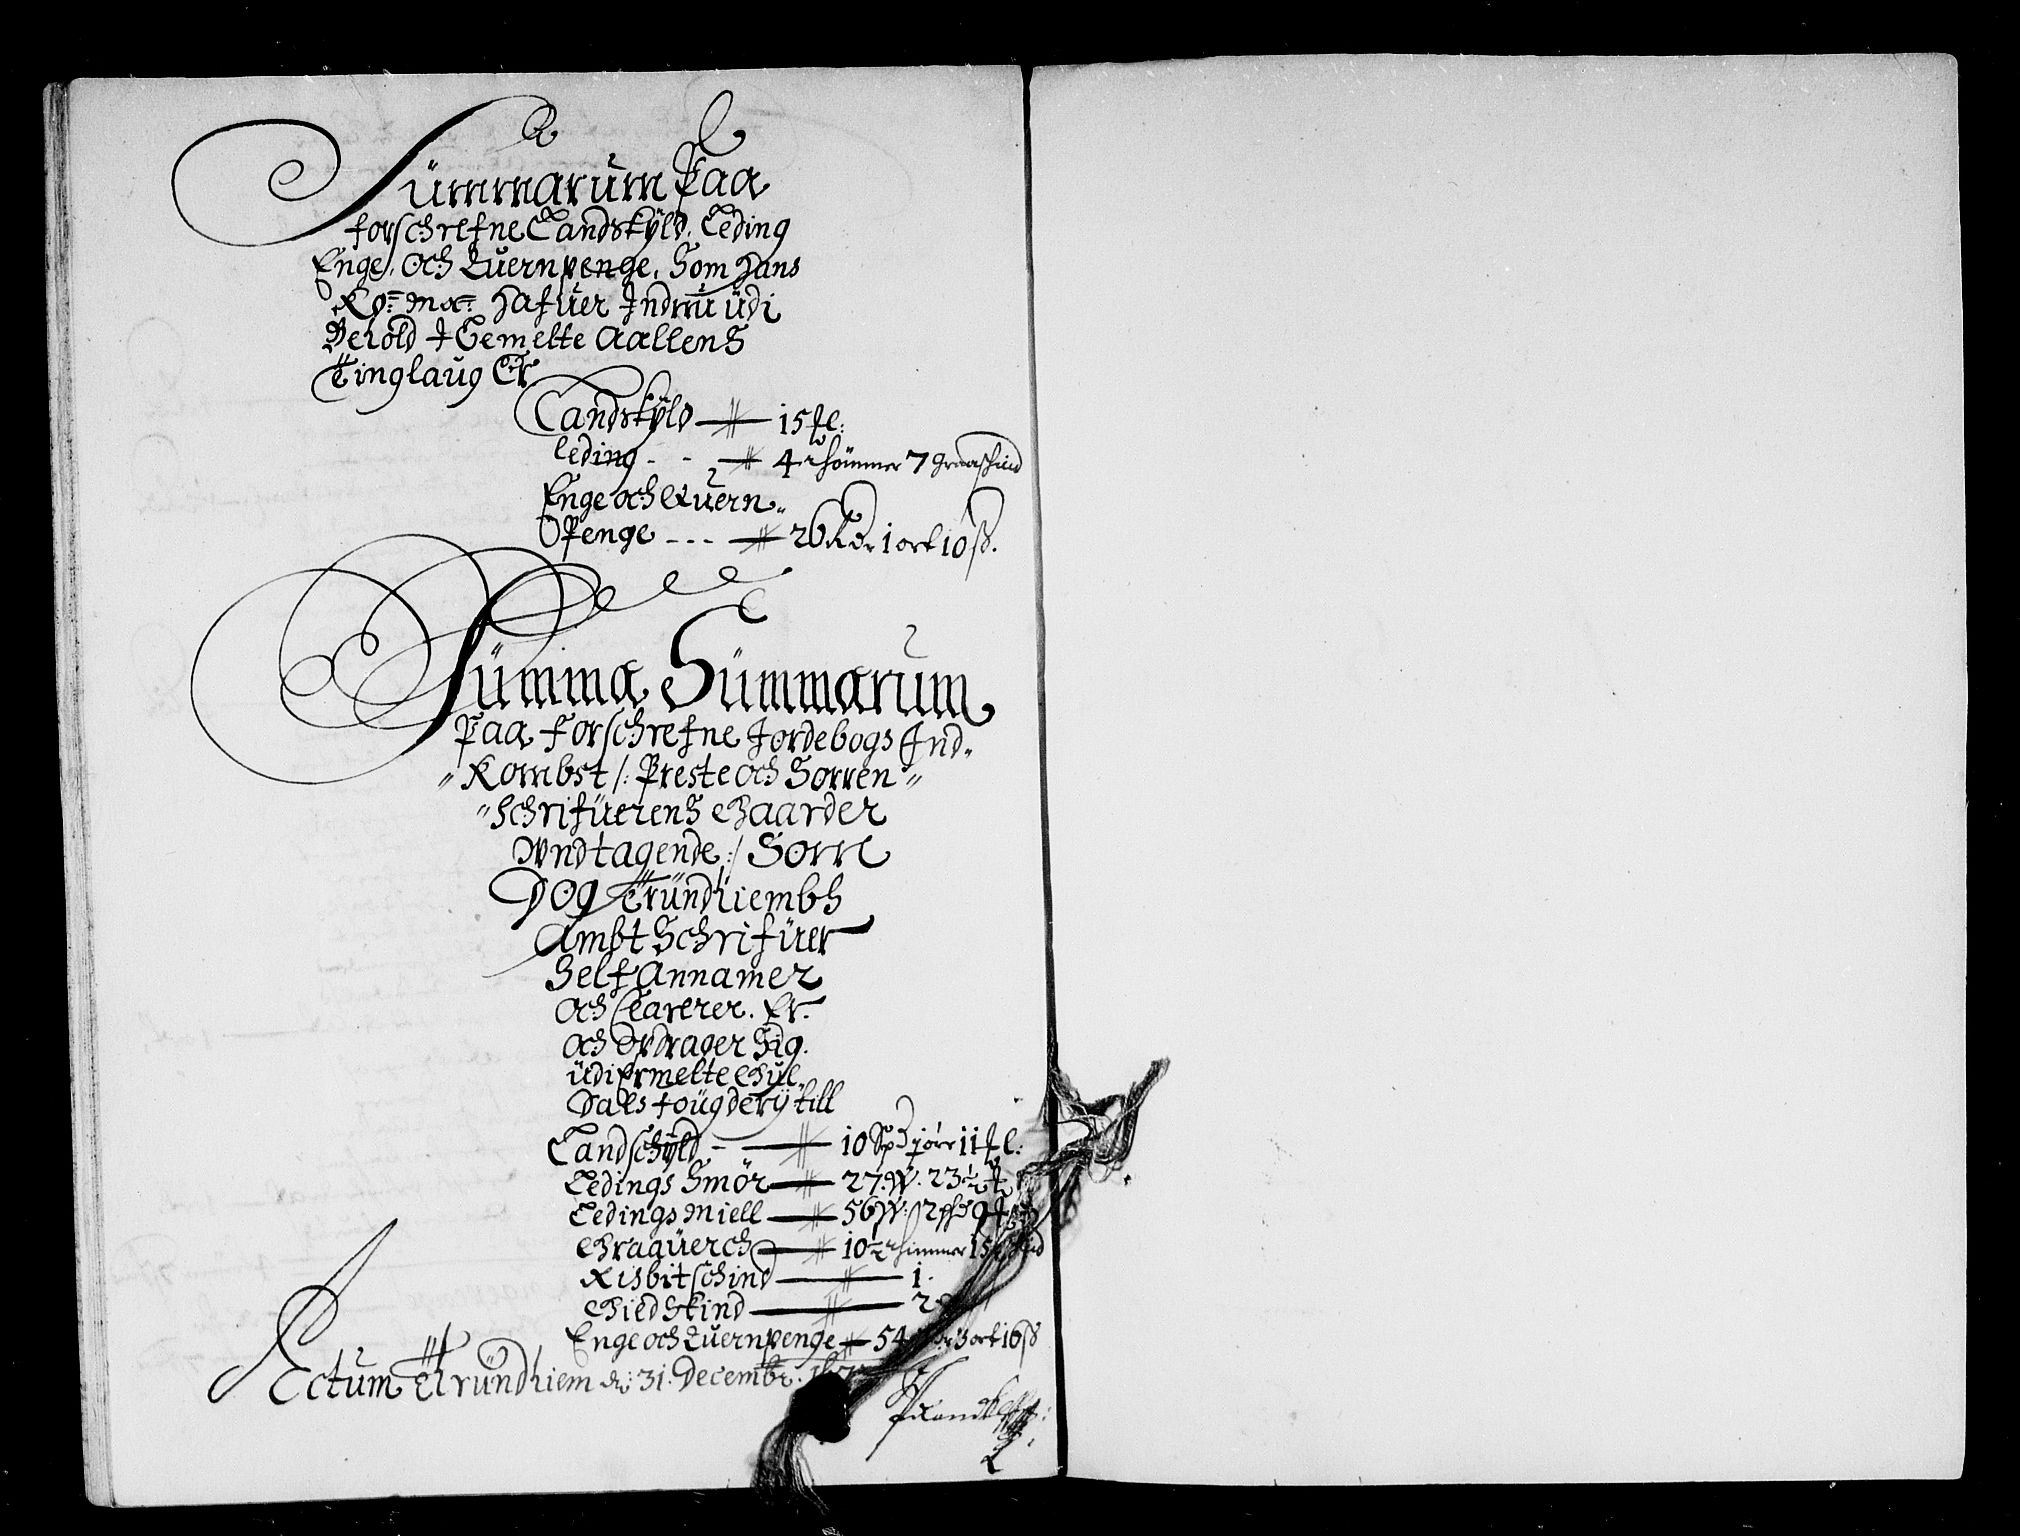 Summarum Paa
forschrefne Landskÿld, Leding
Enge, och Quernpenge, Som Hans
Ko: Ma: Hafuer Indnu üdi
Behold I Gemelte Aallens
Tinglaug Er
Landskÿld — 15 
Leding - - — 4 7 Graaskind
Enge och Quern
Penge - - - — 26 Rdr 1 ort 10 ß.
Summa Summarum
Paa forschrefne Jordebogs Ind-
Kombst /: Preste och Sorren
Schrifuerens Gaarder
Undtagende :/ Som
Dog Trundhiembs
Ambt Schrifuer
Self Annamer
och Clarerer. Er
och Bedrager Sig
üdi Ermelte Gul
Dals fougderÿ till
Landschÿld - — 10 Spd 11
Ledings Smör — 27 W. 23½
Ledings Miell — 56 W: 2 9
Graauerch — 10½ 15
Kisbitschind — 1.
Giedskind — 2
Enge och Quernpenge — 54 3 ort 16 ß
Actum Trundhiem d: 31. Decembr.